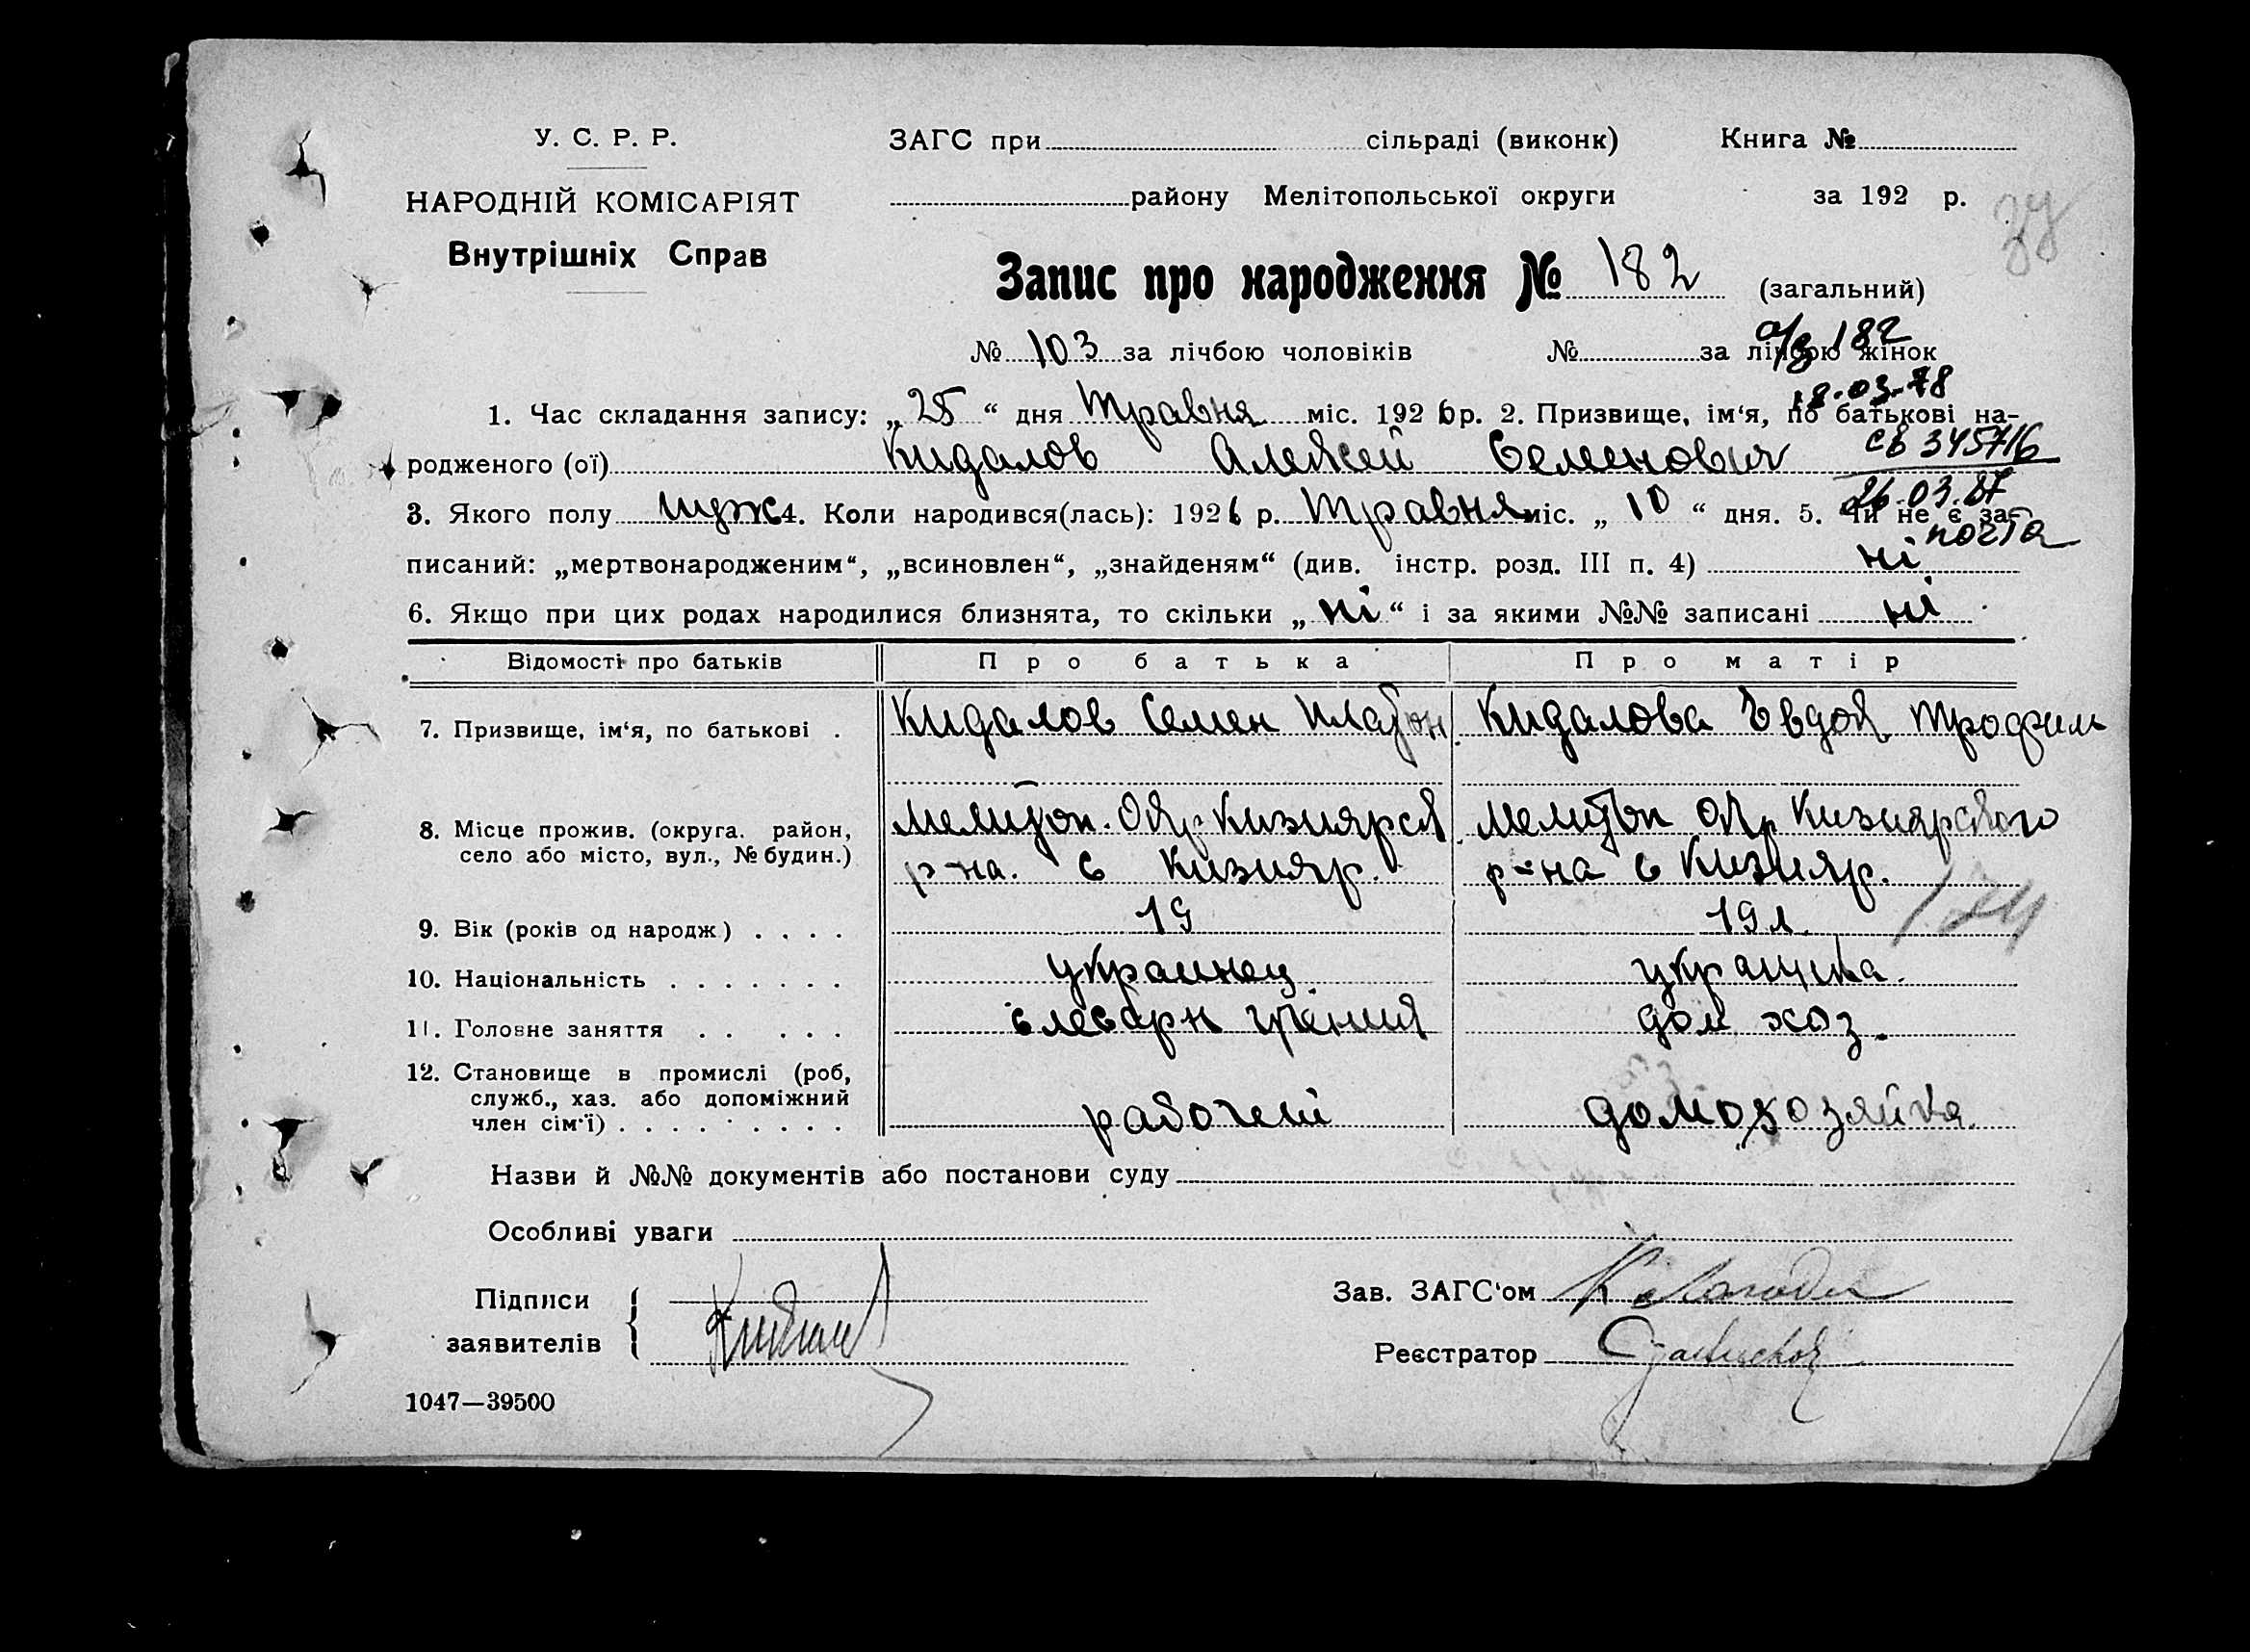 У. С. Р. Р.
НАРОДНІЙ КОМІСАРІЯТ
Внутрішніх Справ
ЗАГС при сільраді (виконк) Книга №
району Мелітопольської округи за 192 р.
Запис про народження № 182 (загальний)
№ 103 за лічбою чоловіків № за лічбою жінок
а/з 182
18.03.78
1. Час складання запису: „25“ дня Травня міс. 1926 р. 2. Призвище, ім'я, по батькові на-
родженого (ої) Кидалов Алексей Семенович
св 345716
26.03.87
почта
3. Якого полу муж 4. Коли народився(лась): 1926 р. Травня міс. „10“ дня. 5. Чи не є за-
писаний: „мертвонародженим“, „всиновлен“, „знайденям“ (див. інстр. розд. III п. 4) ні
6. Якщо при цих родах народилися близнята, то скільки „ні“ і за якими №№ записані ні
Відомості про батьків Про батька Про матір
7. Призвище, ім'я, по батькові . Кидалов Семен Платон. Кидалова Евдок Трофим
8. Місце прожив. (округа. район, село або місто, вул., № будин.) Мелитоп. Окр Кизиярск Мелитоп окр Кизиярского
р-на. с Кизияр. р-на с Кизияр.
9. Вік (років од народж) . . . . 19 19 л.
10. Національність . . . . . . . украинец украинка.
11. Головне заняття . . . . . слесарн дом хоз.
12. Становище в промислі (роб, служб., хаз. або допоміжний член сім'ї) . . . . . . . . . рабочий домохозяйка.
Назви й №№ документів або постанови суду
Особливі уваги
Підписи заявителів
Зав. ЗАГС'ом
Реєстратор
1047—39500